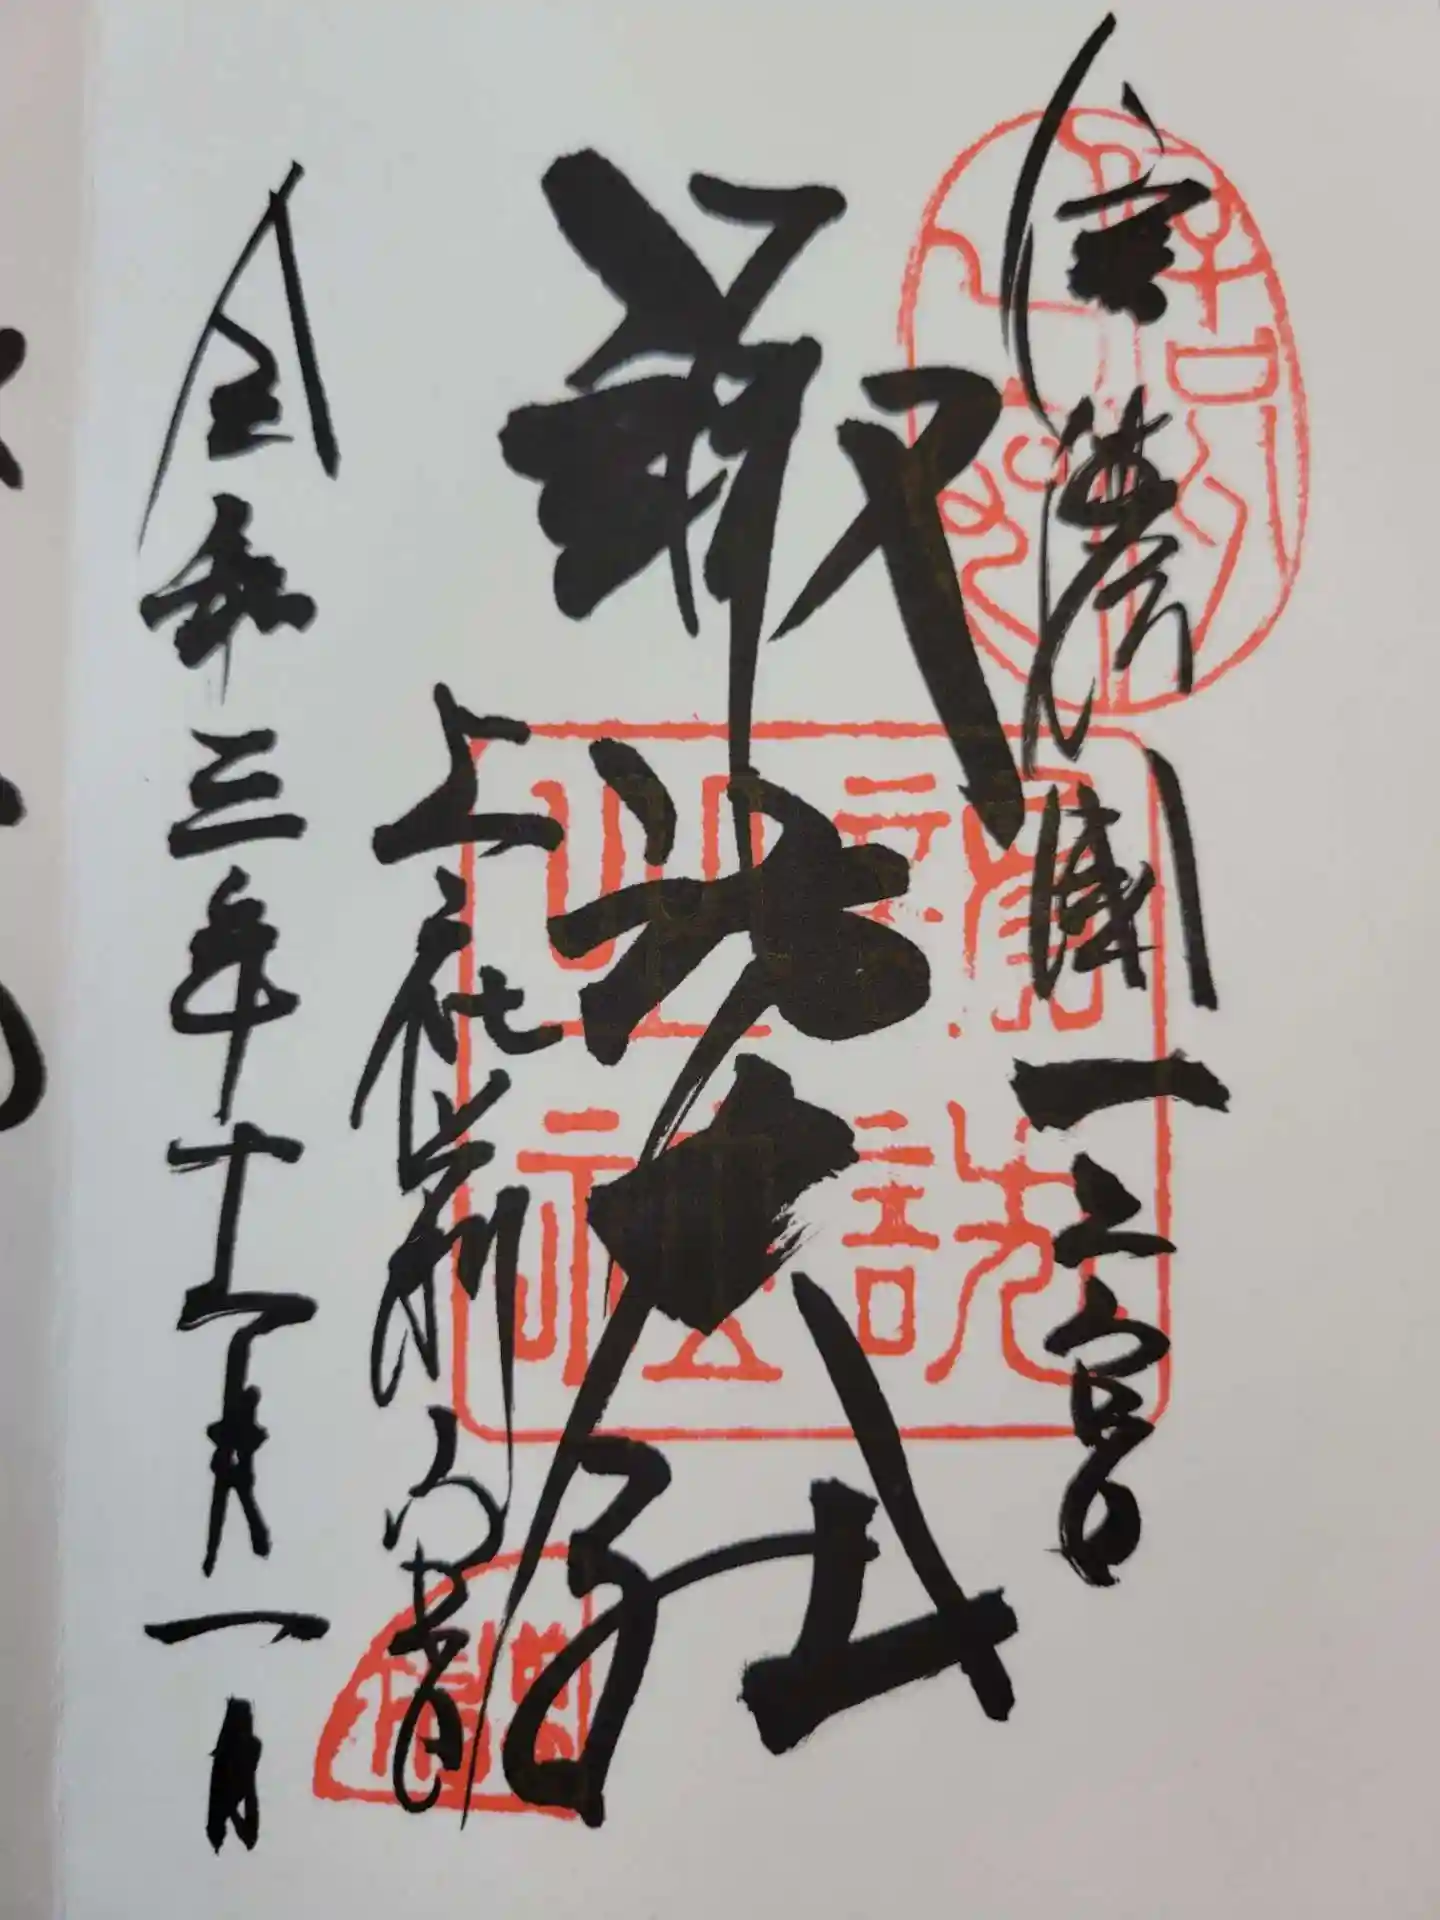 信濃國一之宮
諏訪大社
上社前宮
令和三年十一月一日